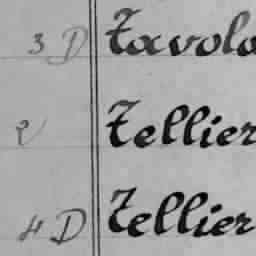 3 D Tavola
2 Tellier
4 D Tellier